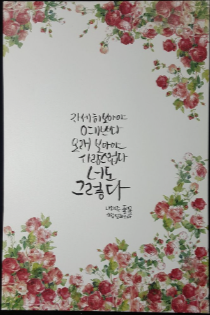 자세히 보아야
예쁘다
오래 보아야
사랑스럽다
너도
그렇다